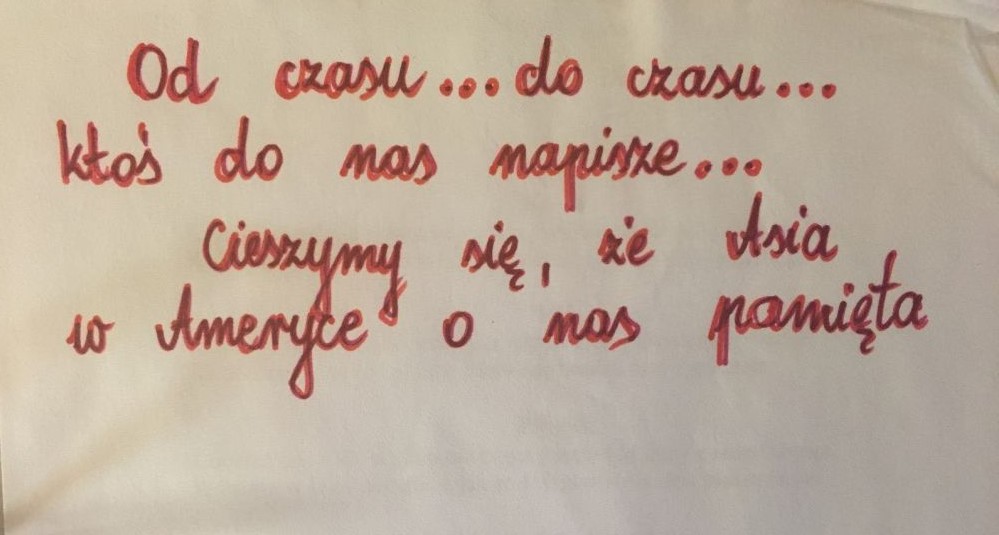 Od czasu... do czasu...
ktoś do nas napisze...
Cieszymy się, że Asia
w Ameryce o nas pamięta